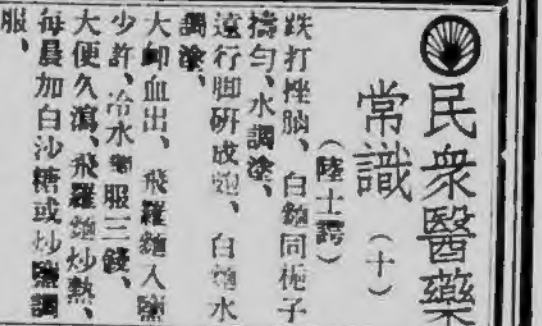 民衆醫藥
常識（十）
（陸士諤）
跌打挫腦、白麵同梔子
擣勻、水調塗、
遠行脚研成皰、白麵水
調塗、
大衄血出、飛羅麵入鹽
少許、冷水 服三錢、
大便久瀉、飛羅麵炒熱、
每晨加白沙糖或炒鹽調
服、